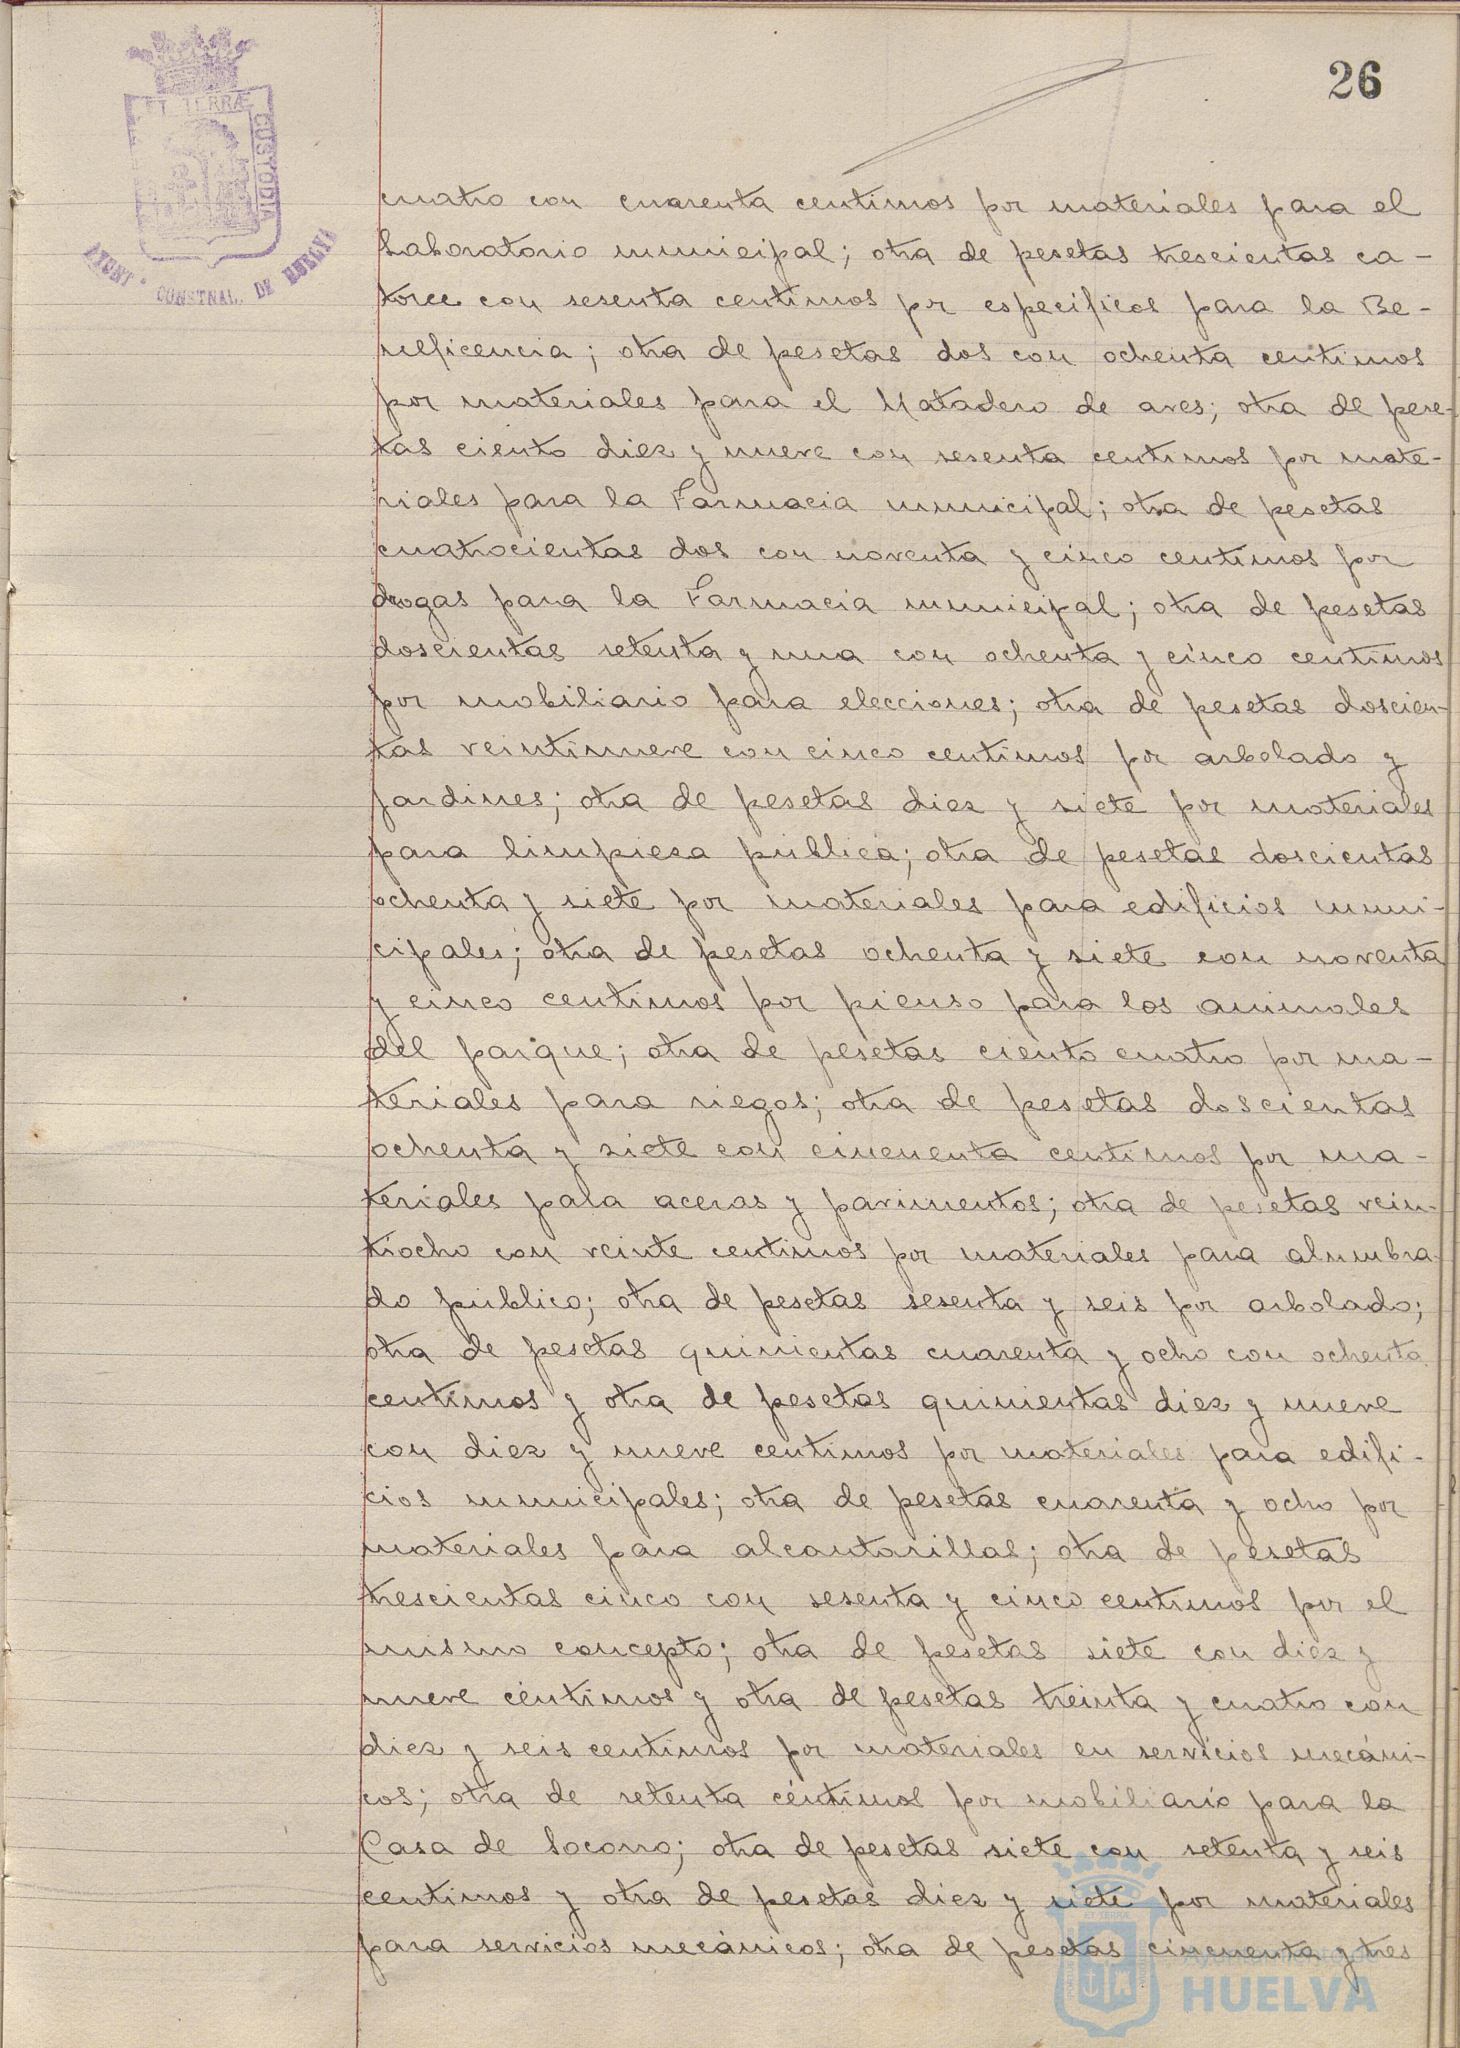 26
ET TERRÆ
CUSTODIA
AYUNT. CONSTNAL. DE HUELVA
cuatro con cuarenta centimos por materiales para el
Laboratorio municipal; otra de pesetas trescientas ca-
torce con sesenta centimos por especificos para la Be-
neficencia; otra de pesetas dos con ochenta centimos
por materiales para el Matadero de aves; otra de pese-
tas ciento diez y nueve con sesenta centimos por mate-
riales para la Farmacia municipal; otra de pesetas
cuatrocientas dos con noventa y cinco centimos por
drogas para la Farmacia municipal; otra de pesetas
doscientas setenta y una con ochenta y cinco centimos
por mobiliario para elecciones; otra de pesetas doscien-
tas veintinueve con cinco centimos por arbolado y
jardines; otra de pesetas diez y siete por materiales
para limpieza pública; otra de pesetas doscientas
ochenta y siete por materiales para edificios muni-
cipales; otra de pesetas ochenta y siete con noventa
y cinco centimos por pienso para los animales
del parque; otra de pesetas ciento cuatro por ma-
teriales para riegos; otra de pesetas doscientas
ochenta y siete con cincuenta centimos por ma-
teriales para aceras y pavimentos; otra de pesetas vein-
tiocho con veinte centimos por materiales para alumbra-
do público; otra de pesetas sesenta y seis por arbolado;
otra de pesetas quinientas cuarenta y ocho con ochenta
centimos y otra de pesetas quinientas diez y nueve
con diez y nueve centimos por materiales para edifi-
cios municipales; otra de pesetas cuarenta y ocho por
materiales para alcantarillas; otra de pesetas
trescientas cinco con sesenta y cinco centimos por el
mismo concepto; otra de pesetas siete con diez y
nueve céntimos y otra de pesetas treinta y cuatro con
diez y seis centimos por materiales en servicios mecáni-
cos; otra de setenta céntimos por mobiliario para la
Casa de Socorro; otra de pesetas siete con setenta y seis
centimos y otra de pesetas diez y siete por materiales
para servicios mecánicos; otra de pesetas cincuenta y tres
Ayuntamiento de
HUELVA